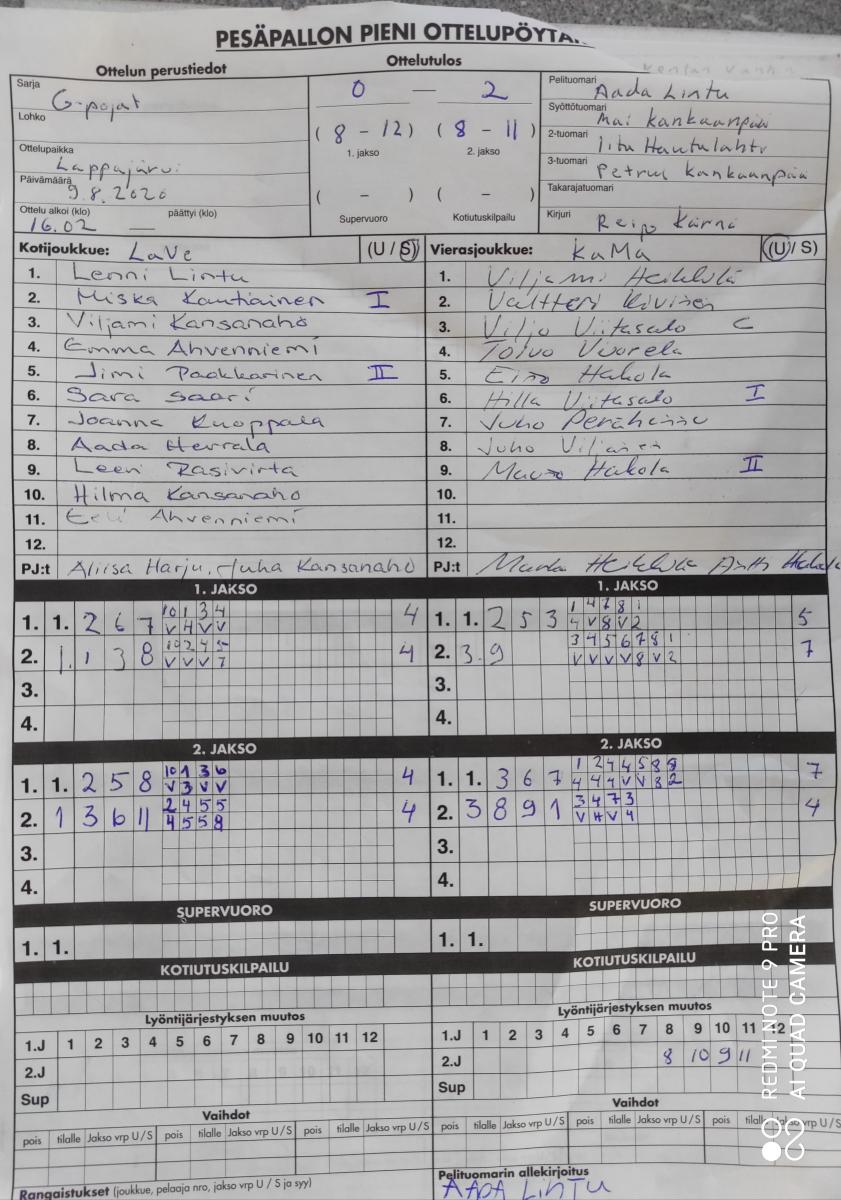 PESÄPALLON PIENI OTTELUPÖYTÄ
Ottelun perustiedot
Ottelutulos
Sarja G-pojat
Lohko
Ottelupaikka Lappajärvi
Päivämäärä 9.8.2020
Ottelu alkoi (klo) päättyi (klo)
16.02 —
0 — 2
(8 - 12) (8 - 11)
1. jakso 2. jakso
( - ) ( - )
Supervuoro Kotiutuskilpailu
Pelituomari Aada Lintu
Syöttötuomari Mai Kankaanpää
2-tuomari Iitu Hautulahti
3-tuomari Petrus Kankaanpää
Takarajatuomari
Kirjuri Reijo Kärnä
Kotijoukkue: LaVe (U / S)
1. Lenni Lintu
2. Miska Kautiainen I
3. Viljami Kansanaho
4. Emma Ahvenniemi
5. Jimi Paakkarinen II
6. Sara Saari
7. Joanna Kuoppala
8. Aada Herrala
9. Leevi Rasivirta
10. Hilma Kansanaho
11. Eeli Ahvenniemi
12.
PJ:t Aliisa Harju, Juha Kansanaho
Vierasjoukkue: KaMa (U / S)
1. Viljami Heikkilä
2. Valtteri Kivinen
3. Viljo Viitasalo C
4. Toivo Vuorela
5. Eino Hakola
6. Hilla Viitasalo I
7. Juho
8. Juho Viljanen
9. Hakola II
10.
11.
12.
PJ:t Heikkilä Antti Hakola
1. JAKSO
1. 1. 2 6 7 10 1 3 4 4
V 4 V V
2. 1. 1 3 8 10 2 4 5 4
V V V 7
3.
4.
1. JAKSO
1. 1. 2 5 3 1 4 7 8 1 5
4 V 8 V 2
2. 3. 9 3 4 5 6 7 8 1 7
V V V V 8 V 2
3.
4.
2. JAKSO
1. 1. 2 5 8 10 1 3 6 4
V 3 V V
2. 1 3 6 11 2 4 5 5 4
4 5 5 8
3.
4.
2. JAKSO
1. 1. 3 6 7 1 2 4 4 5 8 9 7
4 4 4 V V 8 2
2. 3 8 9 1 3 4 7 3 4
V 4 V 4
3.
4.
SUPERVUORO
1. 1.
SUPERVUORO
1. 1.
KOTIUTUSKILPAILU
KOTIUTUSKILPAILU
Lyöntijärjestyksen muutos
1.J 1 2 3 4 5 6 7 8 9 10 11 12
2.J
Sup
Lyöntijärjestyksen muutos
1.J 1 2 3 4 5 6 7 8 9 10 11 12
2.J 8 10 9 11
Sup
Vaihdot
pois tilalle Jakso vrp U / S pois tilalle Jakso vrp U / S pois tilalle Jakso vrp U / S
Vaihdot
pois tilalle Jakso vrp U / S pois tilalle Jakso vrp U / S pois tilalle Jakso vrp U / S
Rangaistukset (joukkue, pelaaja nro, jakso vrp U / S ja syy)
Pelituomarin allekirjoitus
AADA LINTU
REDMI NOTE 9 PRO
AI QUAD CAMERA